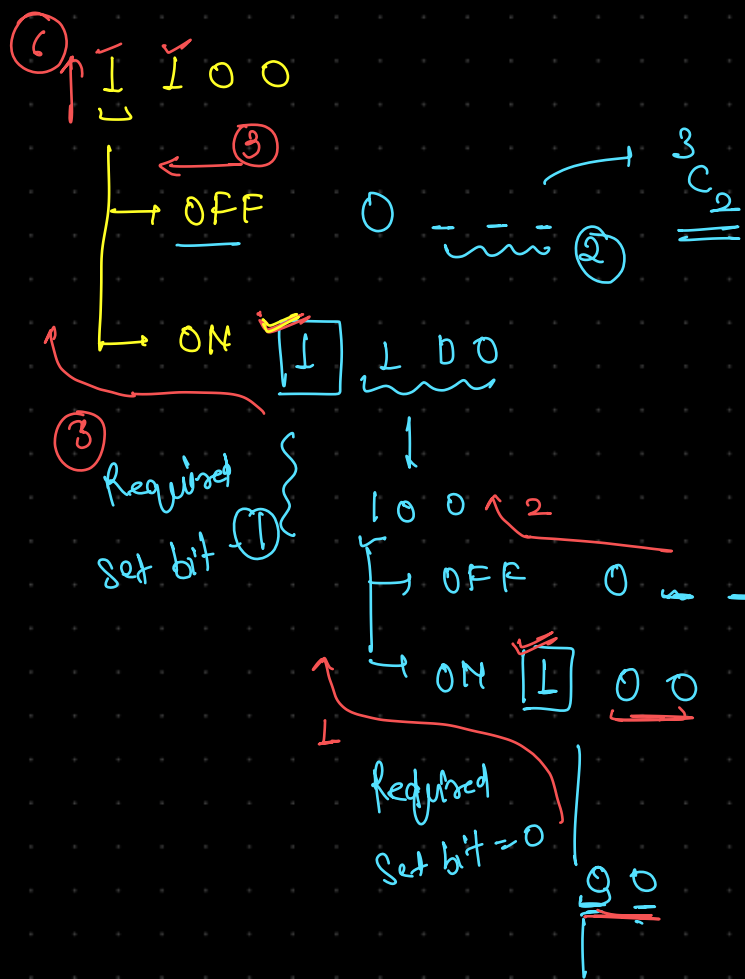 6
1 1 0 0
3
OFF 0 _ _ _ 2
3C2
ON 1 1 0 0
3
Required
set bit - 1
1 0 0 2
OFF 0 _ _
ON 1 0 0
1
Required
set bit = 0
0 0